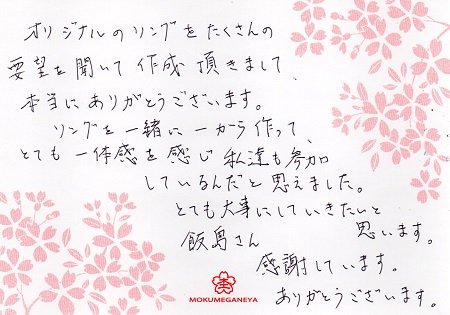 オリジナルのリングをたくさんの
要望を聞いて作成頂きまして、
本当にありがとうございます。
リングを一緒に一から作って、
とても一体感を感じ私達も参加
しているんだと思えました。
とても大事にしていきたいと
思います。
飯島さん
感謝しています。
ありがとうございます。
MOKUMEGANEYA